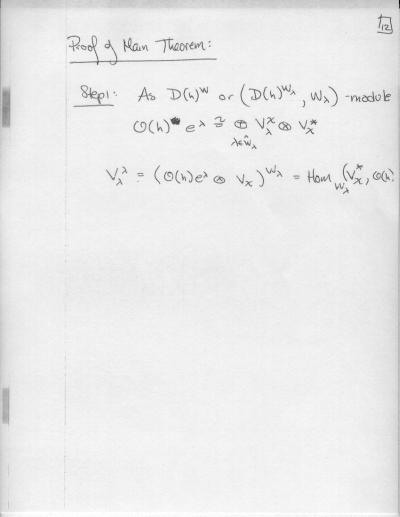 12
Proof of Main Theorem:
Step 1: As D(h)^W or (D(h)^{W_λ}, W_λ) -module
O(h) e^λ ≅ ⊕_{λ∈Ŵ_λ} V_λ^χ ⊗ V_χ^*
V_λ^λ = (O(h)e^λ ⊗ V_χ)^{W_λ} = Hom_{W_λ} (V_χ^*, O(h)